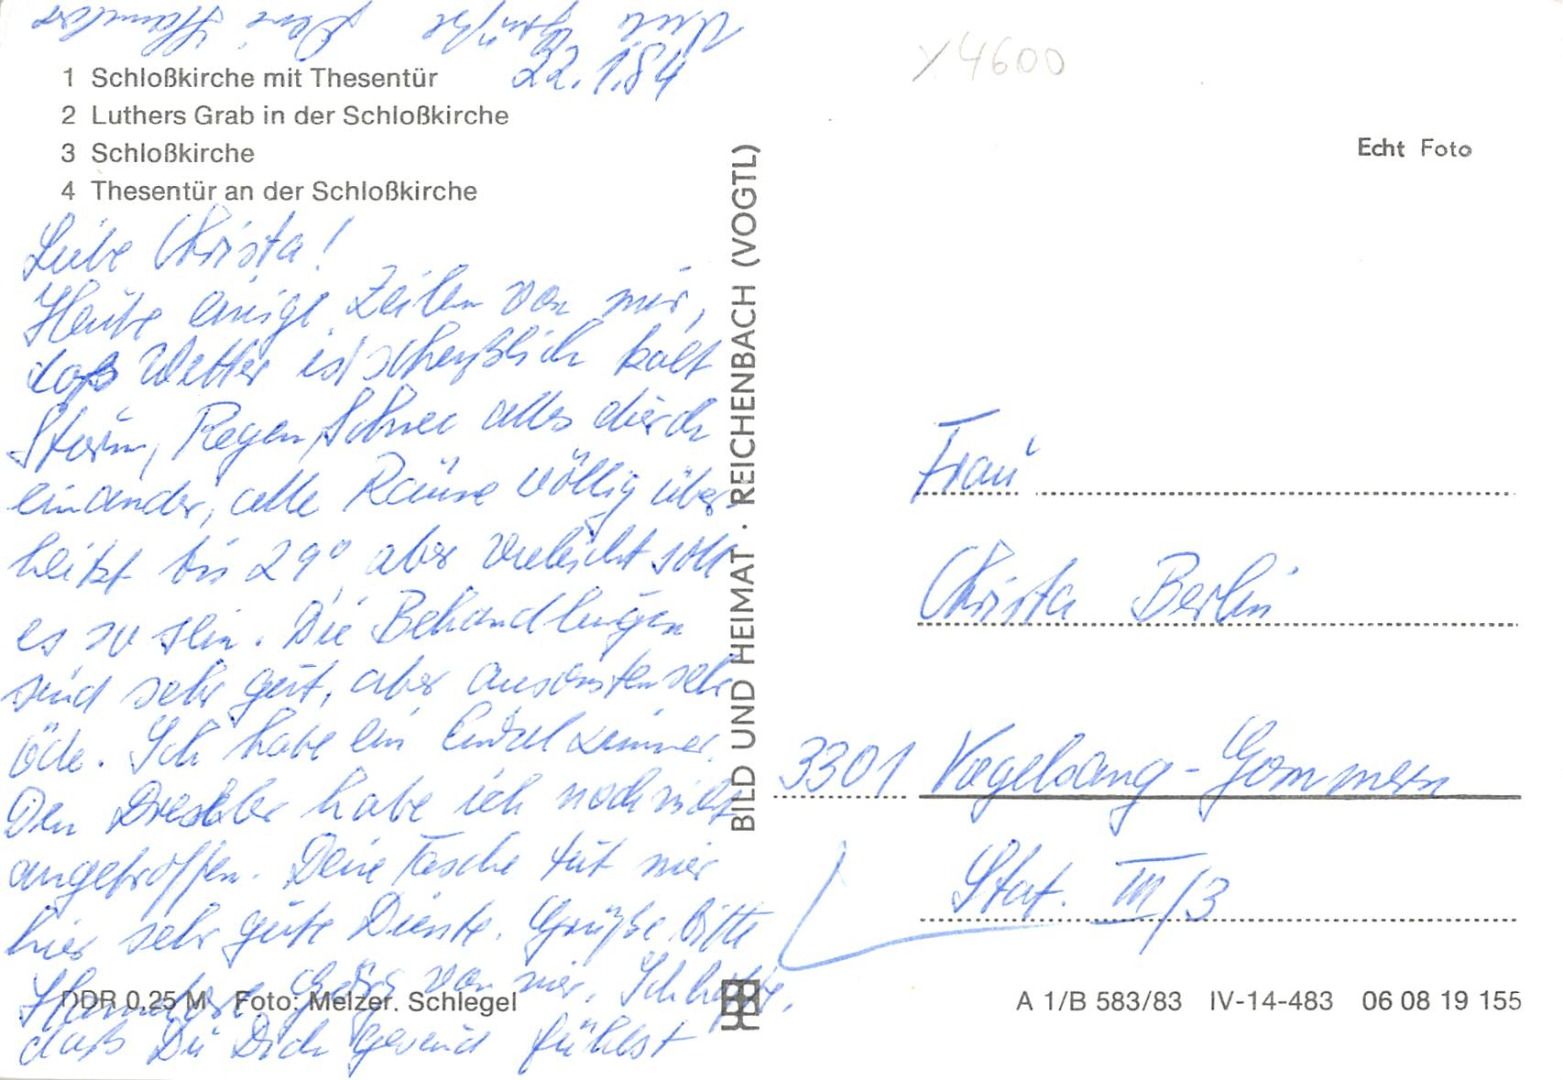 22.1.84
1 Schloßkirche mit Thesentür
2 Luthers Grab in der Schloßkirche
3 Schloßkirche
4 Thesentür an der Schloßkirche
Liebe Christa!
Heute einige Zeilen von mir,
daß Wetter ist scheußlich kalt
Sturm, Regen, Schnee alles durch
einander, alle Räume völlig über
heitzt bis 29° aber vieleicht soll
es so sein. Die Behandlungen
sind sehr gut, aber ansonsten sehr
öde. Ich habe ein Einzelzimmer.
Den Dresdner habe ich noch nicht
angetroffen. Deine Tasche tut mir
hier sehr gute Dienste. Grüße bitte
von mir. Ich hoffe,
daß Du Dich gesund fühlst
Und Grüße Dein
DDR 0,25 M Foto: Melzer. Schlegel
BILD UND HEIMAT · REICHENBACH (VOGTL)
Y4600
Echt Foto
Frau
Christa Berlin
3301 Vogelsang-Gommern
Stat. III/3
A 1/B 583/83 IV-14-483 06 08 19 155